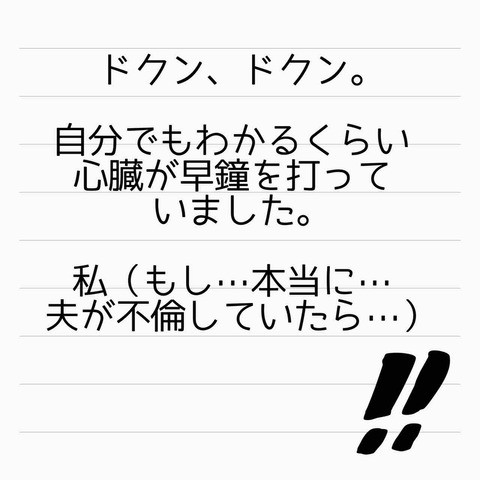 ドクン、ドクン。
自分でもわかるくらい
心臓が早鐘を打って
いました。
私（もし…本当に…
夫が不倫していたら…）
!!